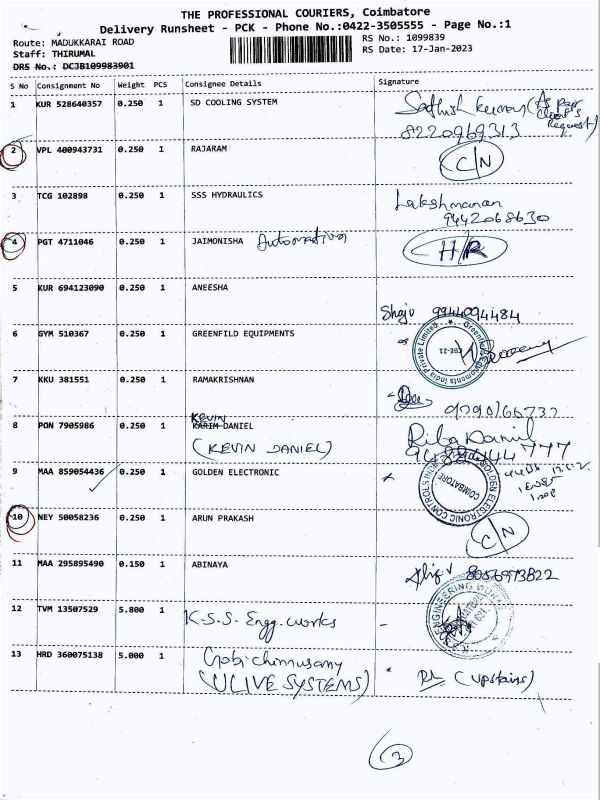 THE PROFESSIONAL COURIERS, Coimbatore
Delivery Runsheet - PCK - Phone No.:0422-3505555 - Page No.:1
Route: MADUKKARAI ROAD RS No.: 1099839
Staff: THIRUMAL RS Date: 17-Jan-2023
DRS No.: DCJB109983901
S No Consignment No Weight PCS Consignee Details Signature
1 KUR 528640357 0.250 1 SD COOLING SYSTEM Sathish Kumar (As per client's Request)
8220969313
2 VPL 400943731 0.250 1 RAJARAM C/N
3 TCG 102898 0.250 1 SSS HYDRAULICS Lakshmanan
9442068630
4 PGT 4711046 0.250 1 JAIMONISHA Automation H/R
5 KUR 694123090 0.250 1 ANEESHA
Shaju 9944094484
6 GYM 510367 0.250 1 GREENFILD EQUIPMENTS
7 KKU 381551 0.250 1 RAMAKRISHNAN
KEVIN
8 PON 7905986 0.250 1 KARIM DANIEL
(KEVIN DANIEL)
9 MAA 859054436 0.250 1 GOLDEN ELECTRONIC
COIMBATORE
10 NEY 50058236 0.250 1 ARUN PRAKASH C/N
11 MAA 295895490 0.150 1 ABINAYA 8056973822
12 TVM 13507529 5.800 1 K.S.S. Engg. works
13 HRD 360075138 5.000 1 (upstairs)
(ULIVE SYSTEMS)
3